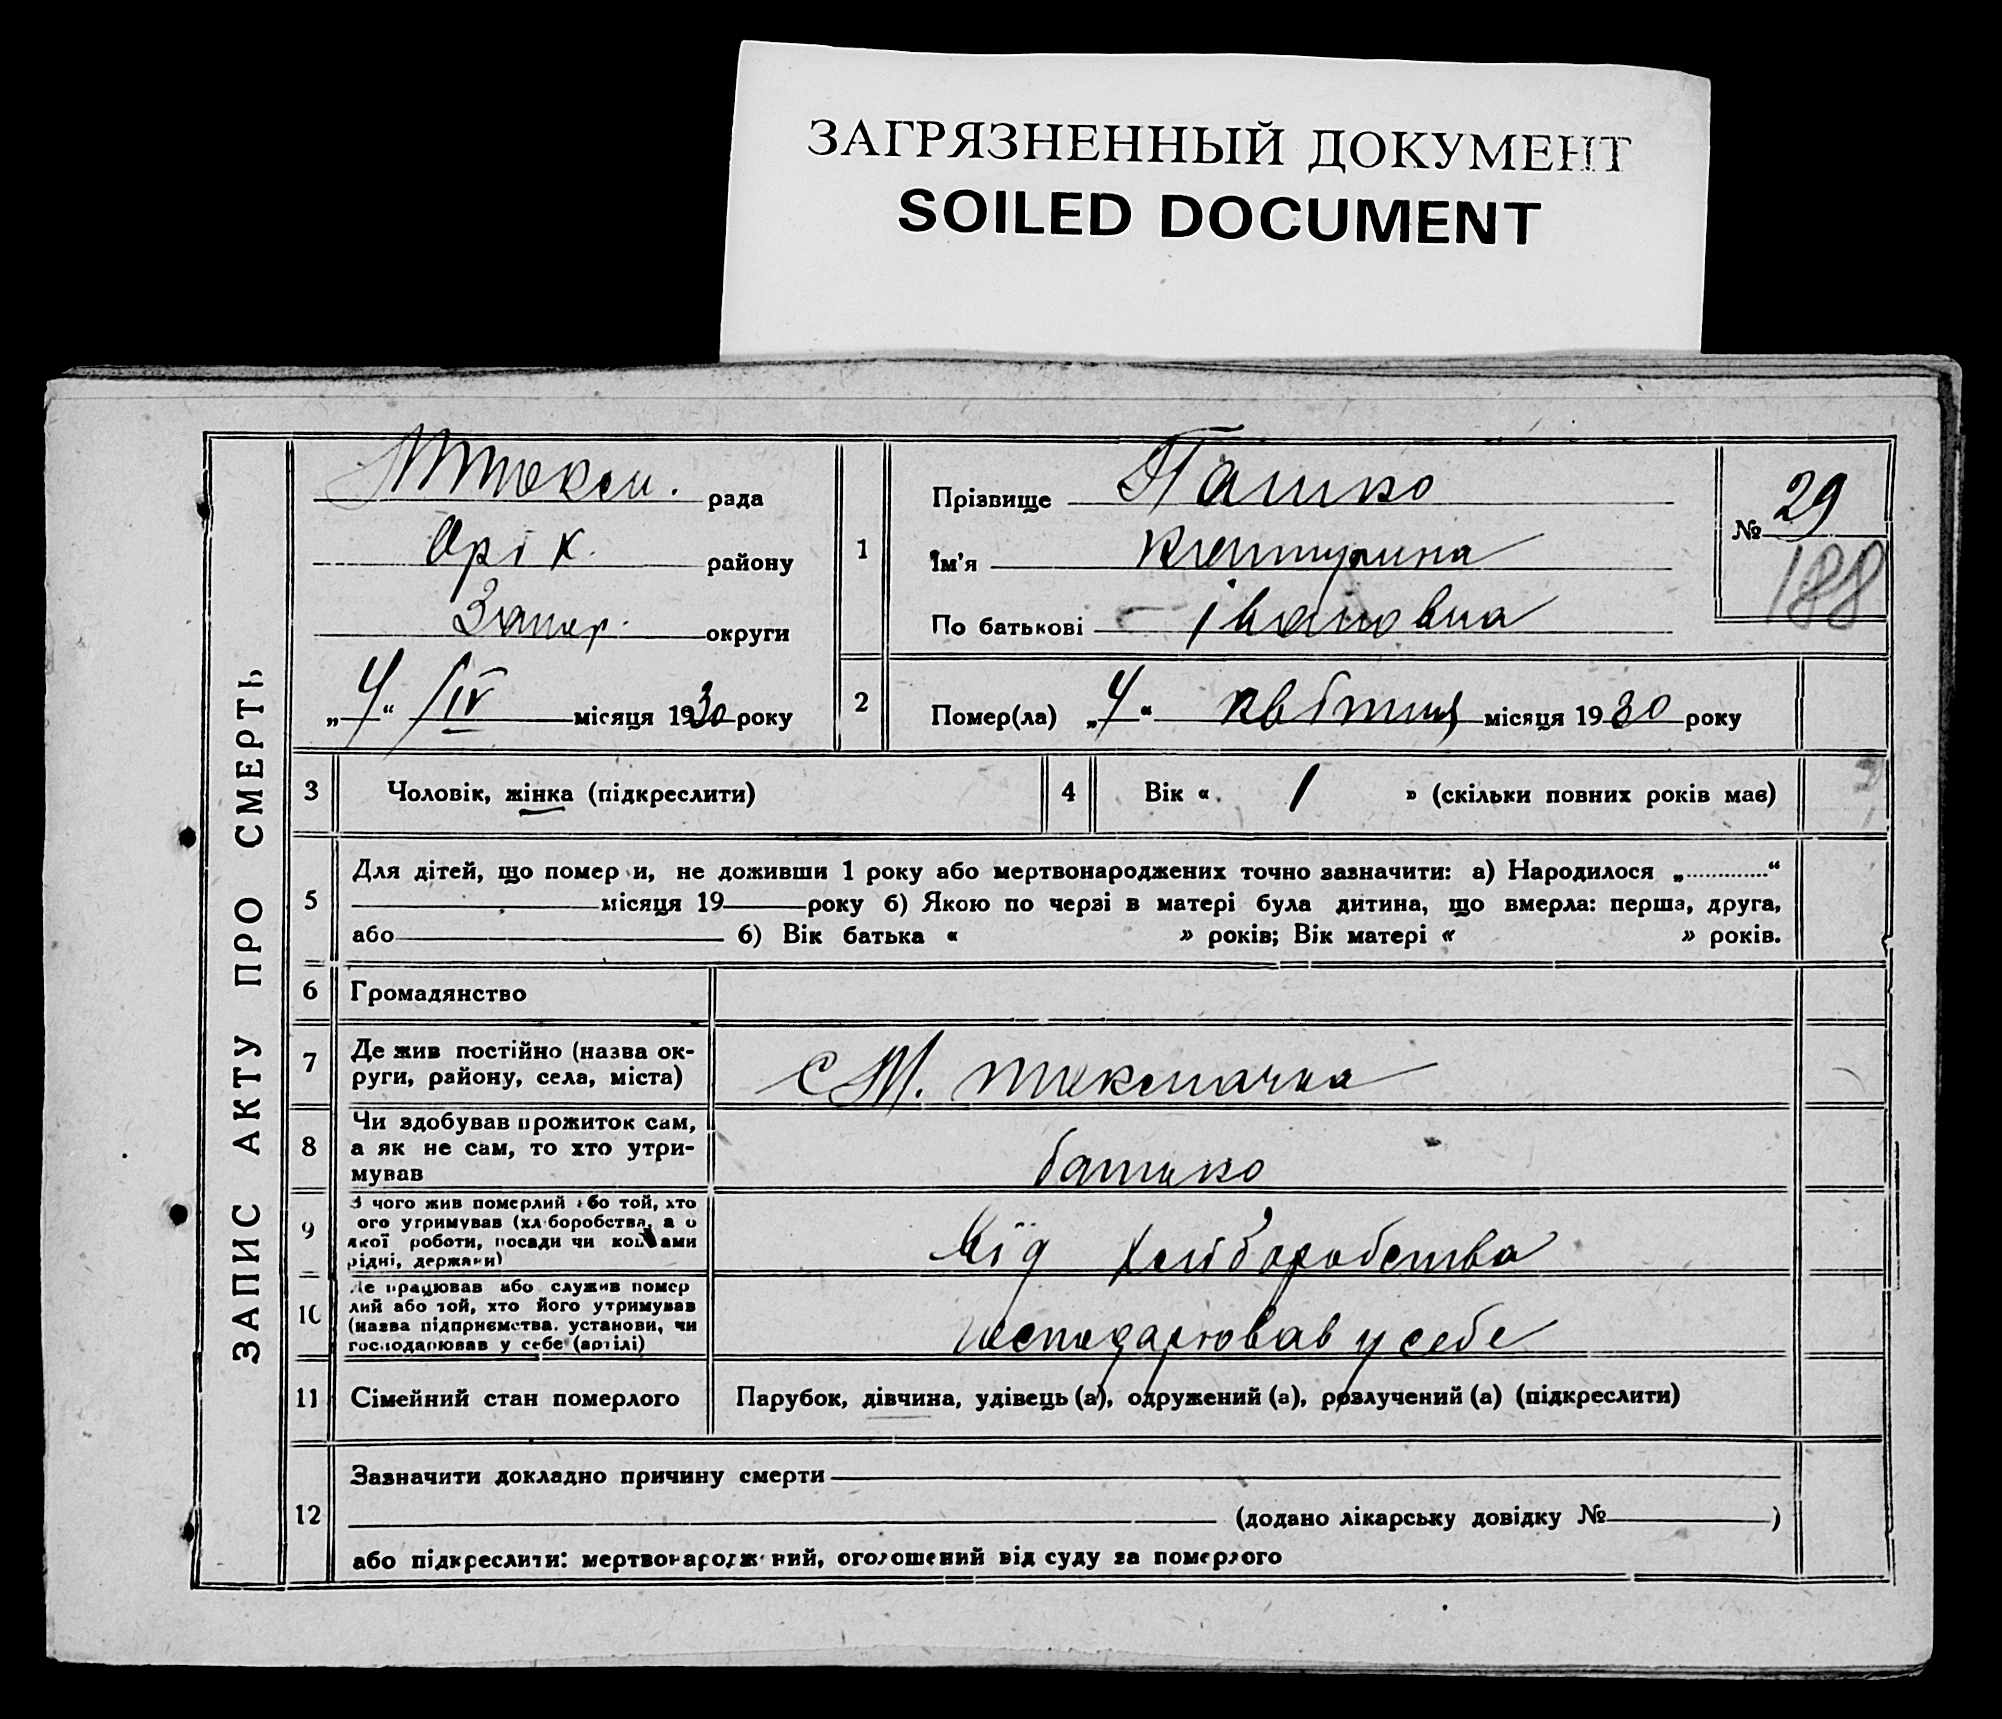 ЗАГРЯЗНЕННЫЙ ДОКУМЕНТ
SOILED DOCUMENT
ЗАПИС АКТУ ПРО СМЕРТЬ
МТокм. рада
Орік. району
Запор. округи
„4“ /IV місяця 1930 року
1
Прізвище Пашко
Ім'я Катерина
По батькові Івановна
№ 29
188
2
Помер(ла) „4“ квітня місяця 1930 року
3 Чоловік, жінка (підкреслити)
4 Вік « 1 » (скільки повних років має)
5 Для дітей, що помер и, не доживши 1 року або мертвонароджених точно зазначити: а) Народилося „.............“
місяця 19 року б) Якою по черзі в матері була дитина, що вмерла: перша, друга,
або б) Вік батька « » років; Вік матері « » років.
6 Громадянство
7 Де жив постійно (назва ок-
руги, району, села, міста)
с М. Токмачка
8 Чи здобував прожиток сам,
а як не сам, то хто утри-
мував
батько
9 З чого жив померлий або той, хто
ого утримував (хл боробства, а о
якої роботи, посади чи коштами
рідні, держави)
від хліборобства
10 Де працював або служив помер
лий або той, хто його утримував
(назва підприємства, установи, чи
господарював у себе (артілі)
господарював у себе
11 Сімейний стан померлого
Парубок, дівчина, удівець (а), одружений (а), розлучений (а) (підкреслити)
12 Зазначити докладно причину смерти
(додано лікарську довідку № )
або підкреслити: мертвонароджений, оголошений від суду за померлого